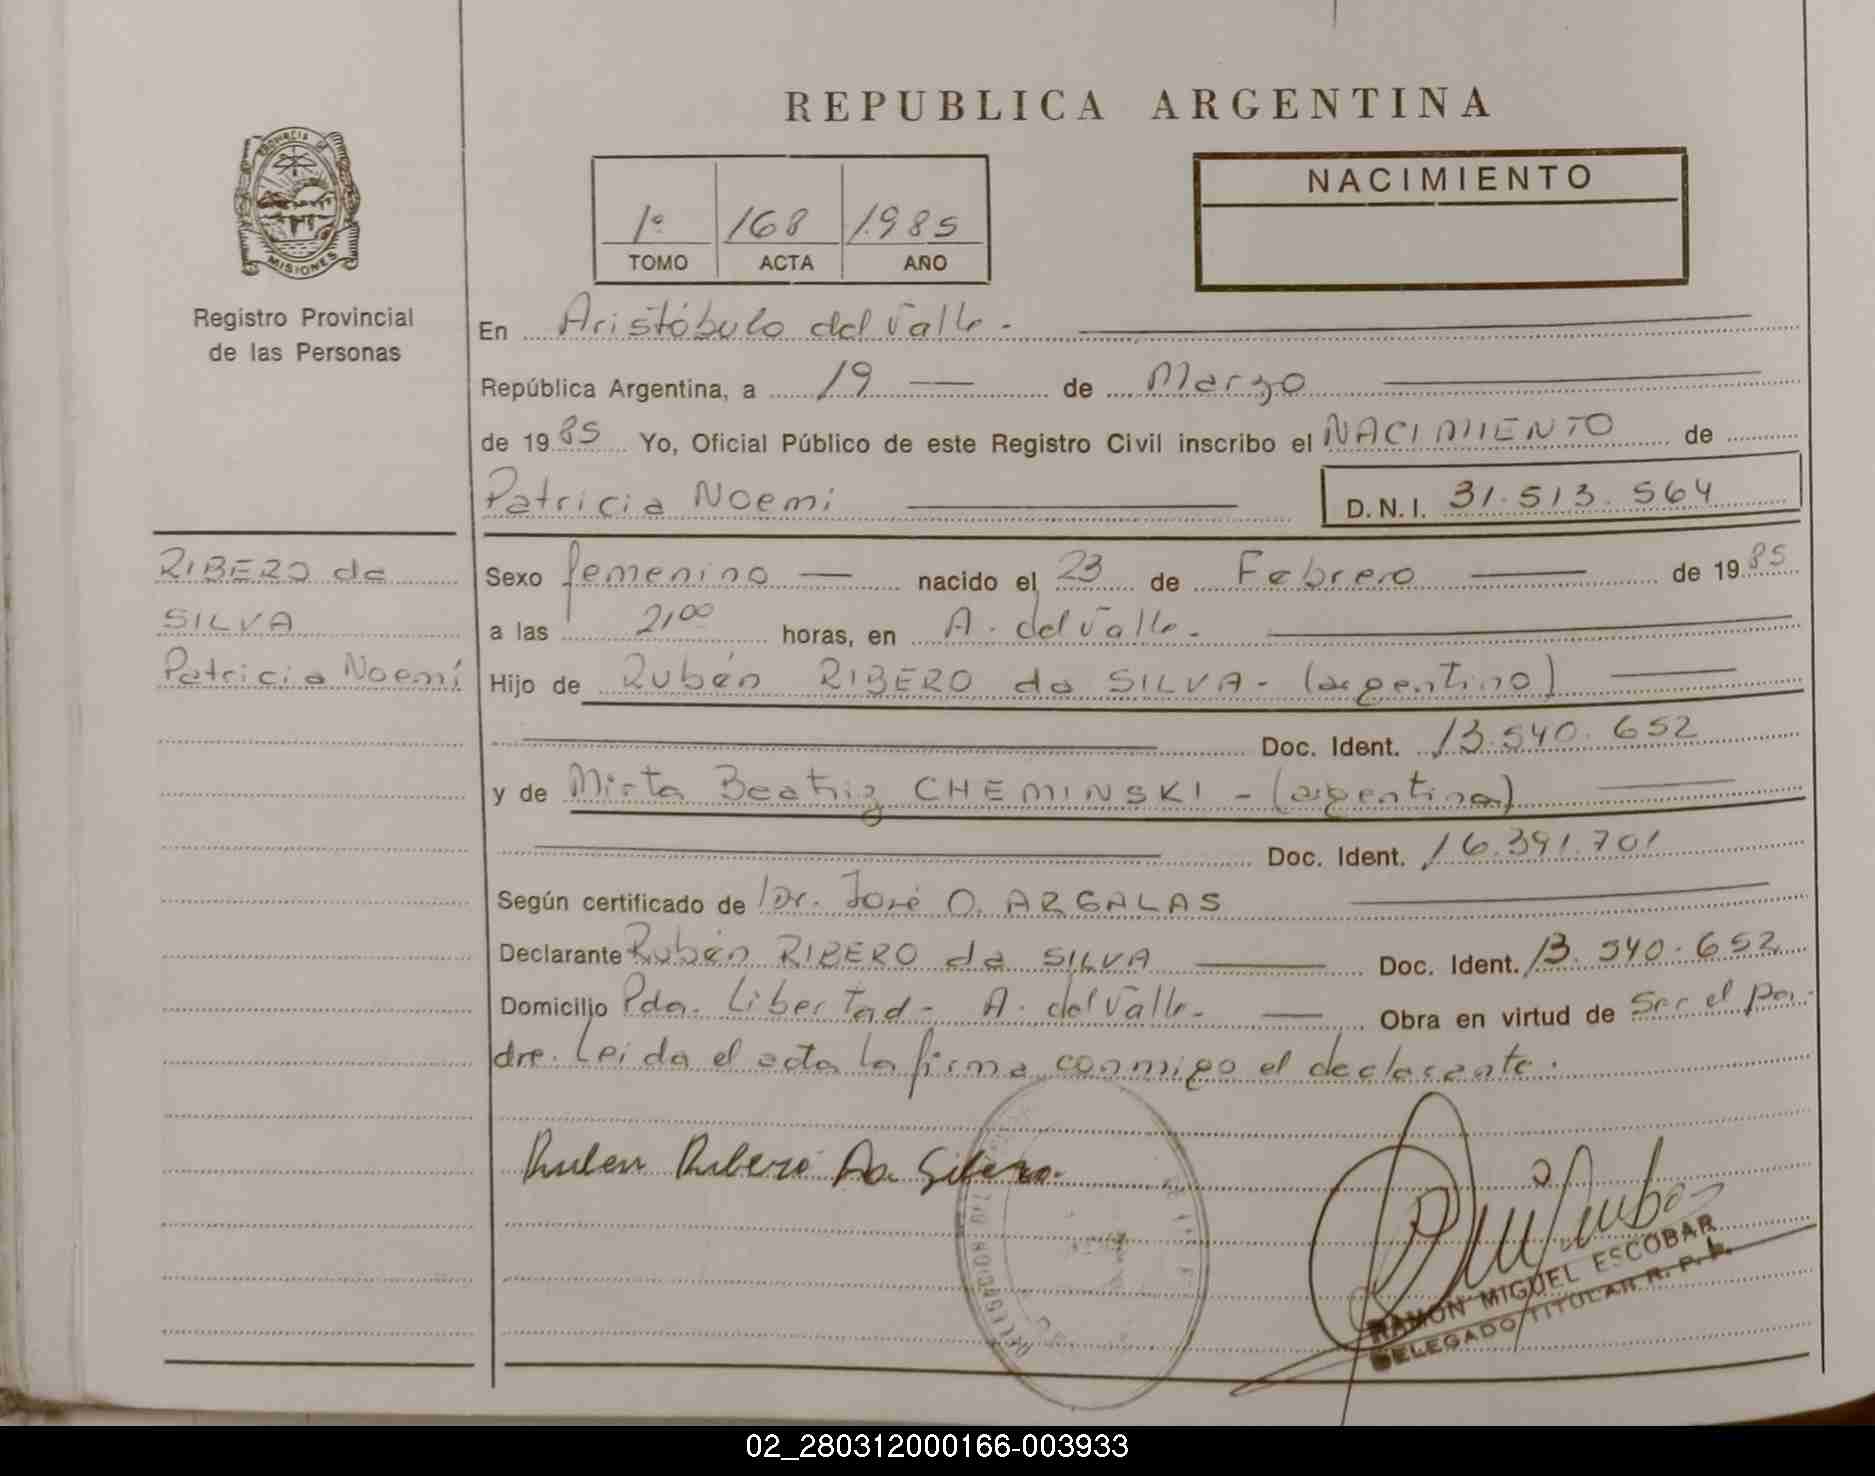 REPUBLICA ARGENTINA
PROVINCIA
MISIONES
Registro Provincial
de las Personas
1º 168 1985
TOMO ACTA AÑO
NACIMIENTO
En Aristóbulo del Valle.
República Argentina, a 19 de Marzo
de 1985 Yo, Oficial Público de este Registro Civil inscribo el NACIMIENTO de
Patricia Noemi
D.N.I. 31.513.564
RIBERO da
SILVA
Patricia Noemí
Sexo femenino nacido el 23 de Febrero de 1985
a las 2,00 horas, en A. del Valle.
Hijo de Rubén RIBERO da SILVA - (argentino)
Doc. Ident. 13.540.652
y de Mirta Beatriz CHEMINSKI - (argentina)
Doc. Ident. 16.391.701
Según certificado de Dr. José O. ARGALAS
Declarante Rubén RIBERO da SILVA Doc. Ident. 13.540.652
Domicilio Pda. Libertad - A. del Valle. Obra en virtud de ser el pa-
dre. Leida el acta la firma conmigo el declarante.
Ruben Ribero Da Silva
RAMON MIGUEL ESCOBAR
DELEGADO TITULAR R. P. P.
02_280312000166-003933